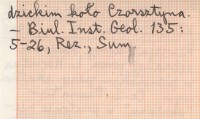 dzickim koło Czorsztyna.
– Biul. Inst. Geol. 135:
5-26, Rez., Sum.